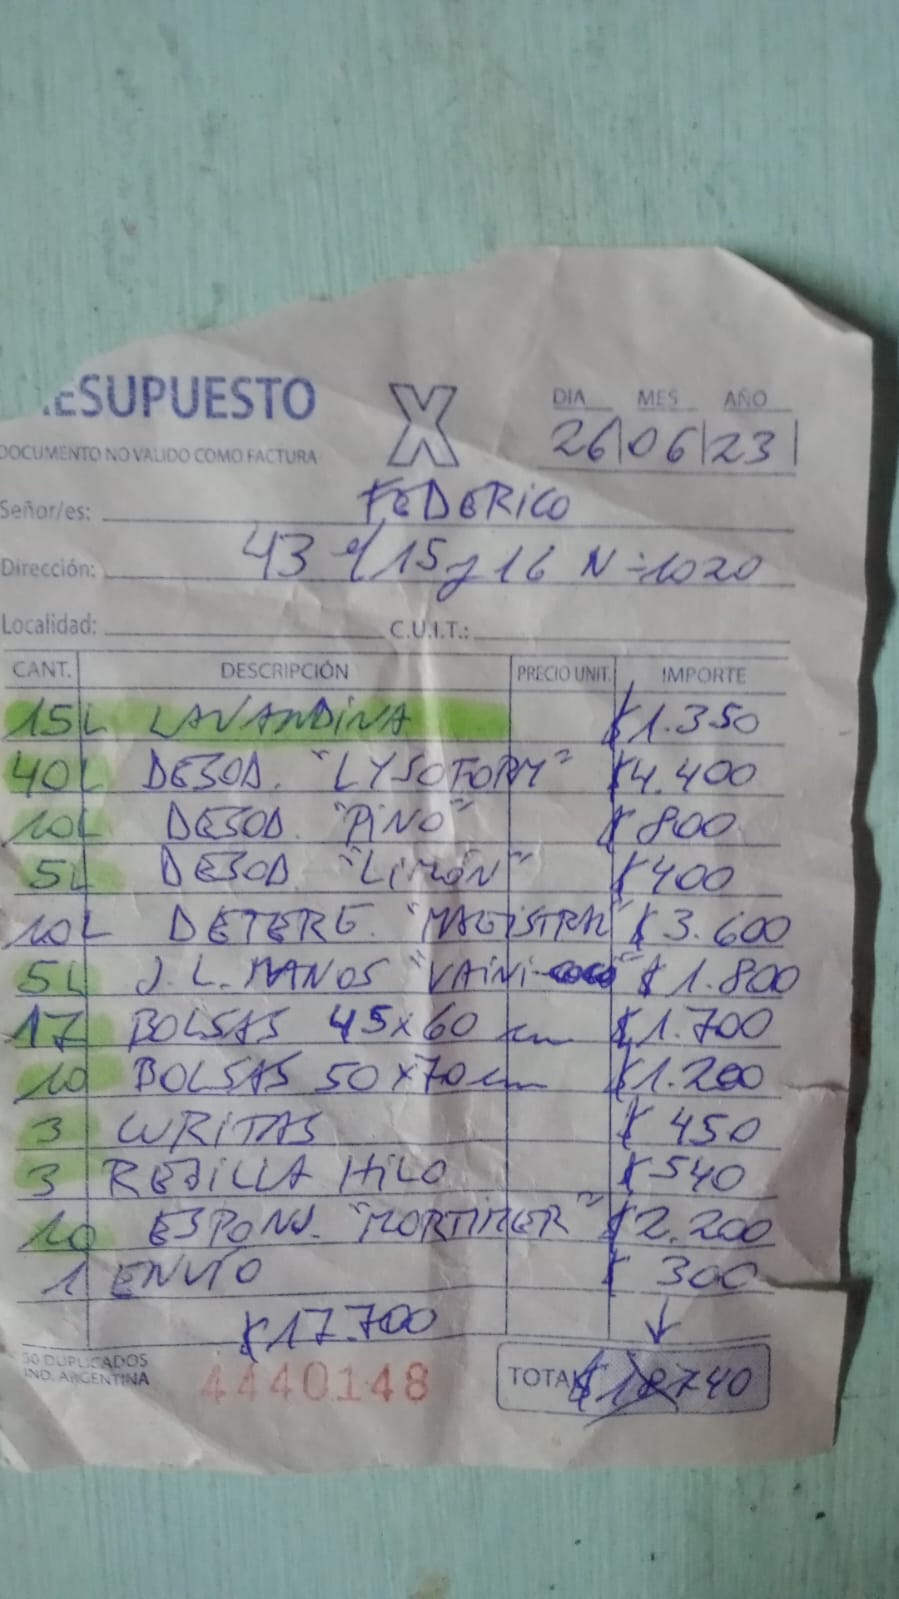 ESUPUESTO
X
DIA MES AÑO
DOCUMENTO NO VALIDO COMO FACTURA
26/06/23
Señor/es: FEDERICO
Dirección: 43 e/15 y 16 N=1020
Localidad: C.U.I.T.:
CANT. DESCRIPCIÓN PRECIO UNIT. IMPORTE
15L LAVANDINA $1.350
40L DESOD. "LYSOFORM" $4.400
10L DESOD. "PINO" $800
5L DESOD "LIMÓN" $400
10L DETERG. "MAGISTRAL" $3.600
5L J.L. MANOS "VAINI-COCO" $1.800
17 BOLSAS 45x60 cm $1.700
10 BOLSAS 50x70 cm $1.200
3 CURITAS $450
3 REJILLA HILO $540
10 ESPONJ. "MORTIMER" $2.200
1 ENVÍO $300
$17.700
50 DUPLICADOS
IND. ARGENTINA
4440148
TOTAL $18740